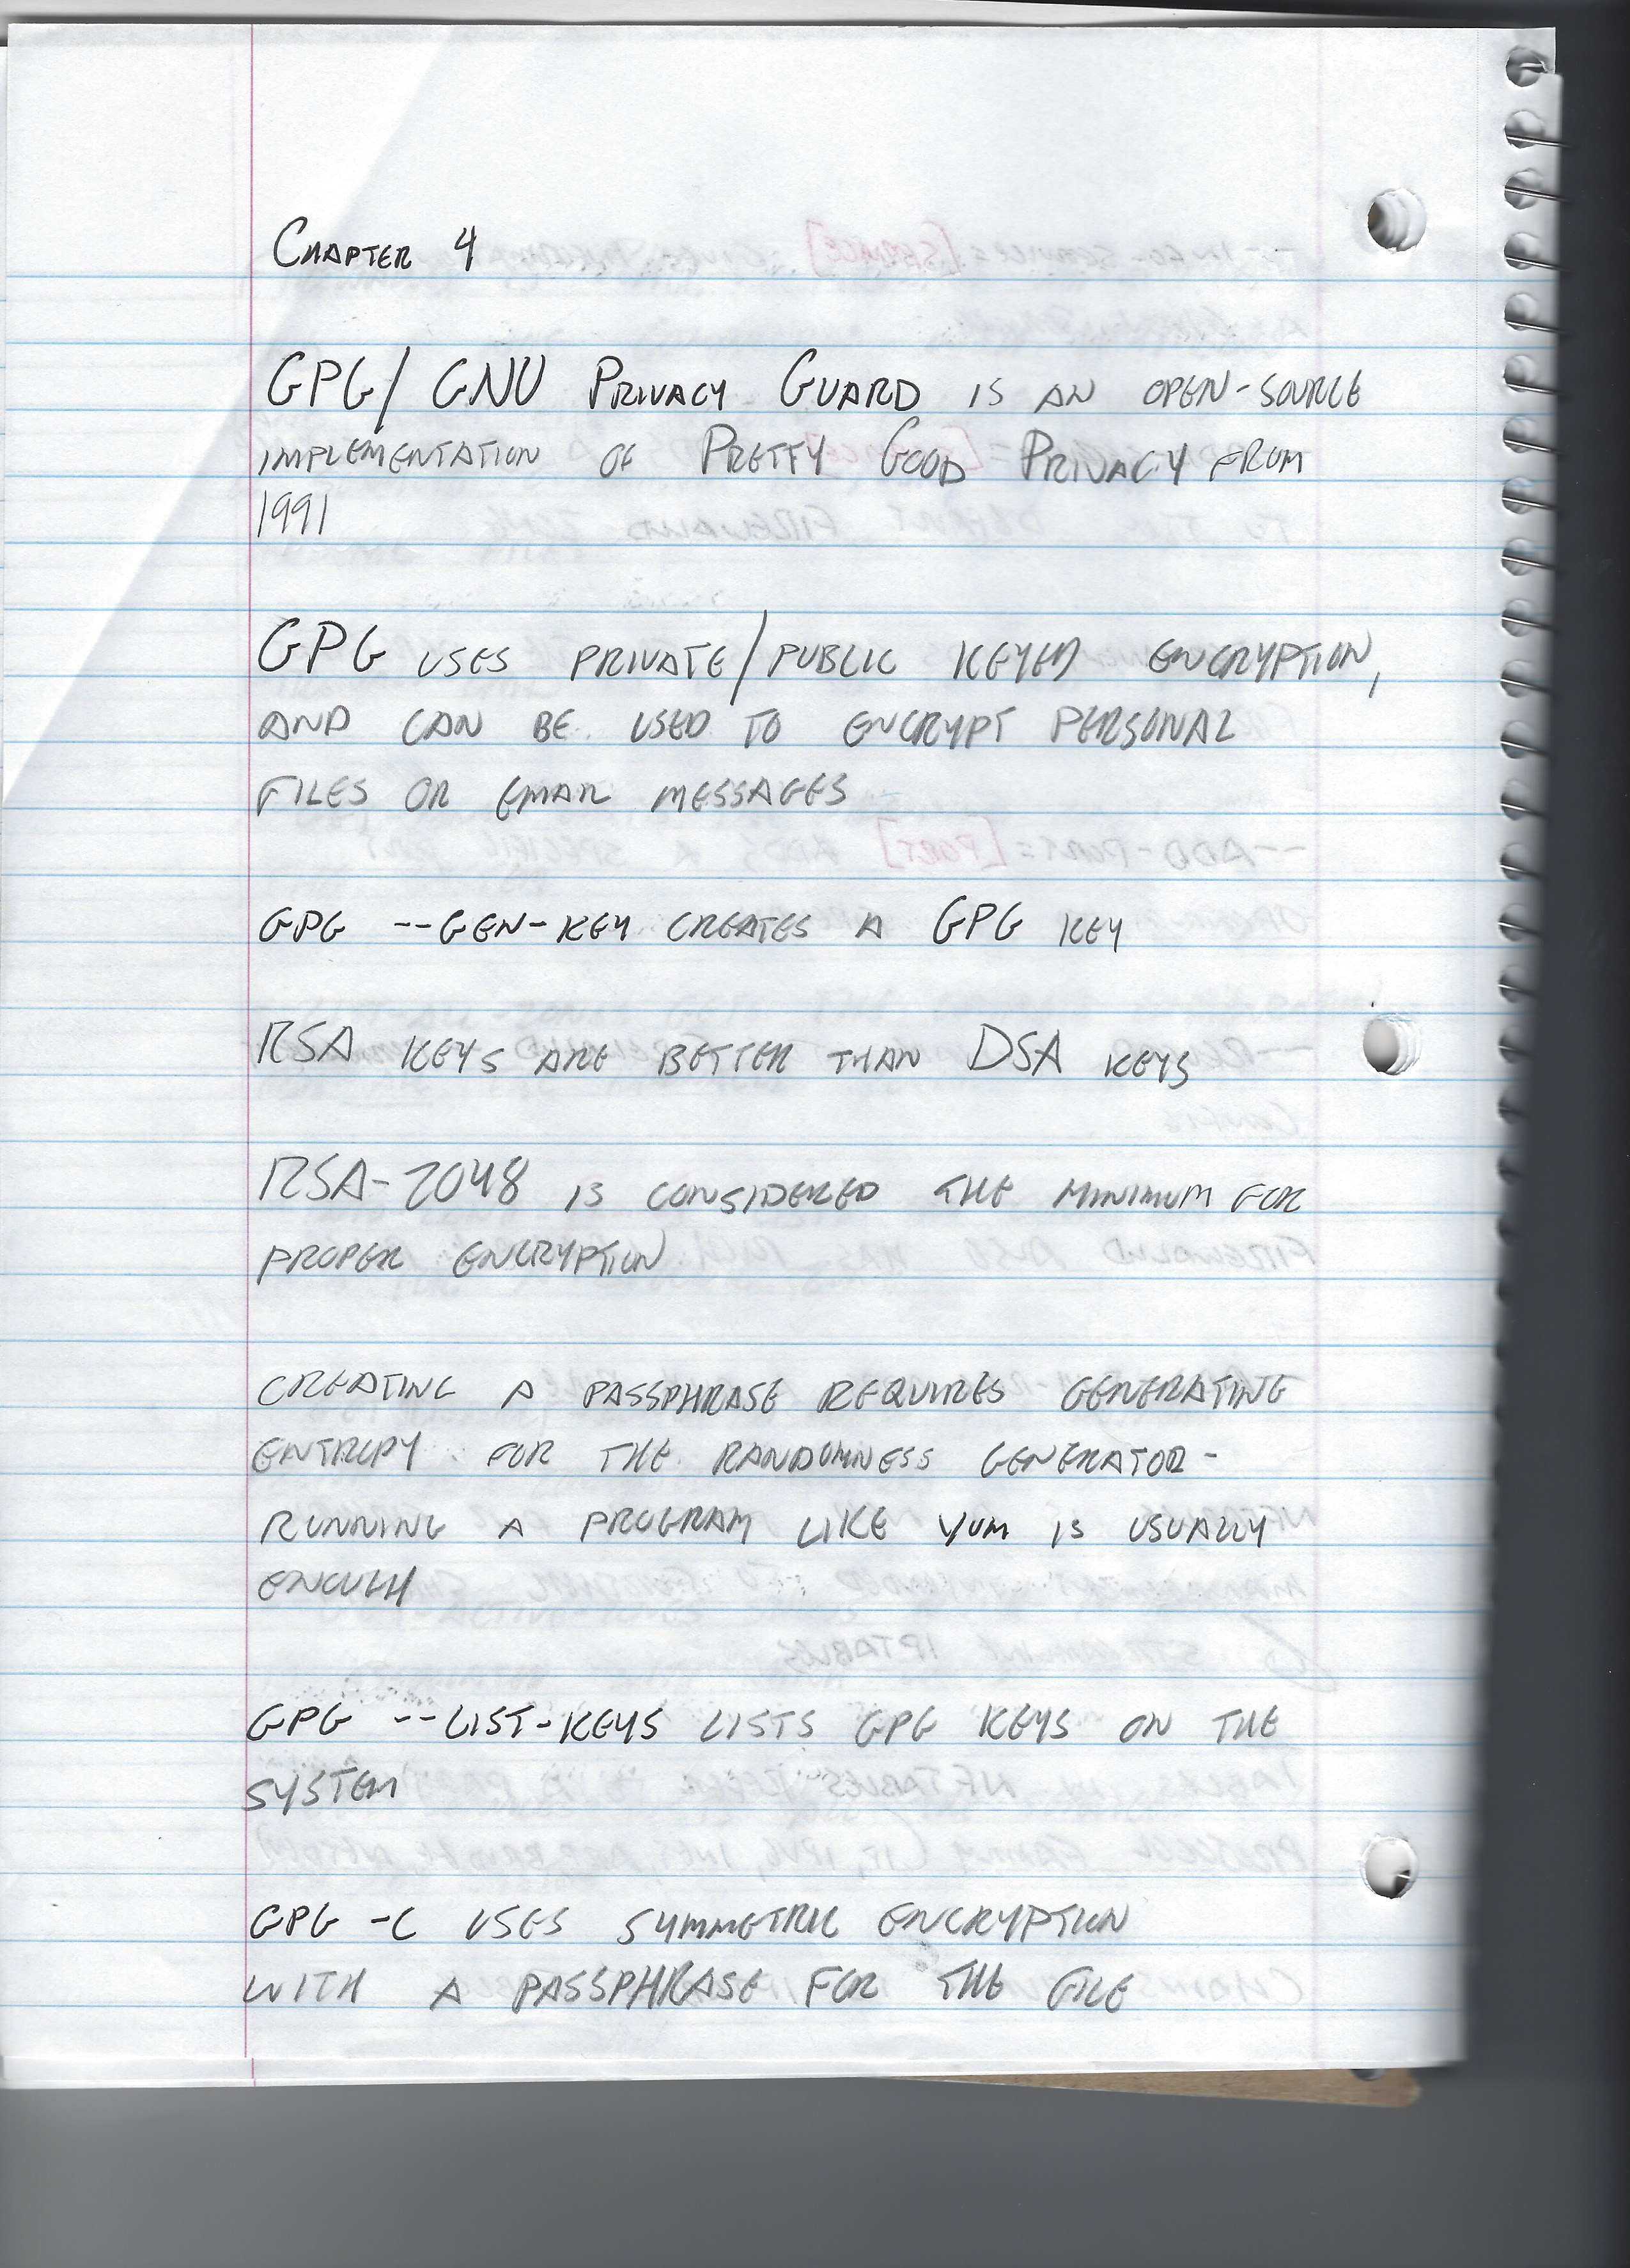 CHAPTER 4
GPG/ GNU PRIVACY GUARD IS AN OPEN-SOURCE
IMPLEMENTATION OF PRETTY GOOD PRIVACY FROM
1991
GPG USES PRIVATE/PUBLIC KEYED ENCRYPTION,
AND CAN BE USED TO ENCRYPT PERSONAL
FILES OR EMAIL MESSAGES
GPG --GEN-KEY CREATES A GPG KEY
RSA KEYS ARE BETTER THAN DSA KEYS
RSA-2048 IS CONSIDERED THE MINIMUM FOR
PROPER ENCRYPTION
CREATING A PASSPHRASE REQUIRES GENERATING
ENTROPY FOR THE RANDOMNESS GENERATOR-
RUNNING A PROGRAM LIKE YUM IS USUALLY
ENOUGH
GPG --LIST-KEYS LISTS GPG KEYS ON THE
SYSTEM
GPG -C USES SYMMETRIC ENCRYPTION
WITH A PASSPHRASE FOR THE FILE